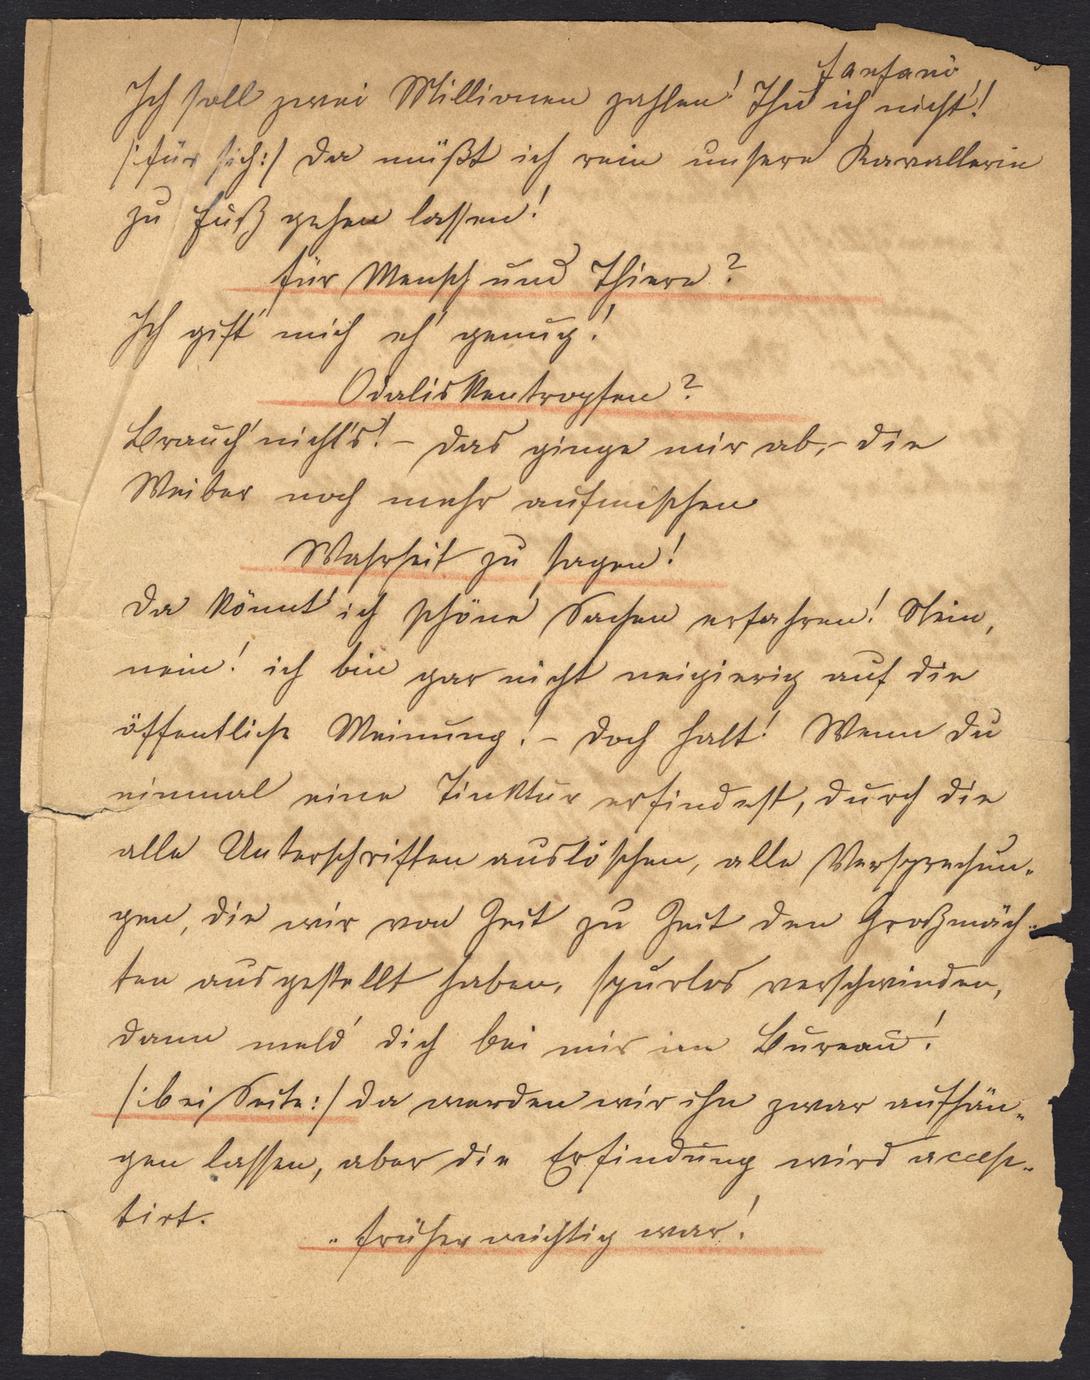 Fanfani
Ich soll zwei Millionen zahlen! Thu' ich nicht!
/:für sich:/ Da müßt ich rein unsere Kavallerie
zu Fuß gehen lassen!
für Mensch und Thiere?
Ich gift' mich eh' genug!
Odaliskentropfen?
Brauch' nicht's! – Das ginge mir ab, – die
Weiber noch mehr aufmischen
Wahrheit zu sagen!
Da könnt' ich schöne Sachen erfahren! Nein,
nein! ich bin gar nicht neigierig auf die
öffentliche Meinung! – Doch halt! Wenn Du
einmal eine Tinktur erfindest, durch die
alle Unterschriften auslöschen, alle Versprechun-
gen, die wir von Zeit zu Zeit den Großmäch-
ten ausgestellt haben, spurlos verschwinden,
dann meld' dich bei mir im Bureau!
/:bei Seite:/ Da werden wir ihn zwar aufhän-
gen lassen, aber die Erfindung wird accep-
tirt.
„ früher wichtig war!